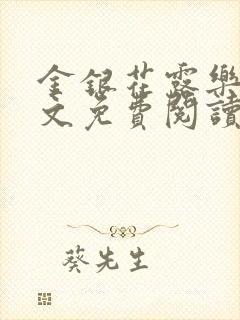 金銀花露樂
文免費閱讀
葵先生